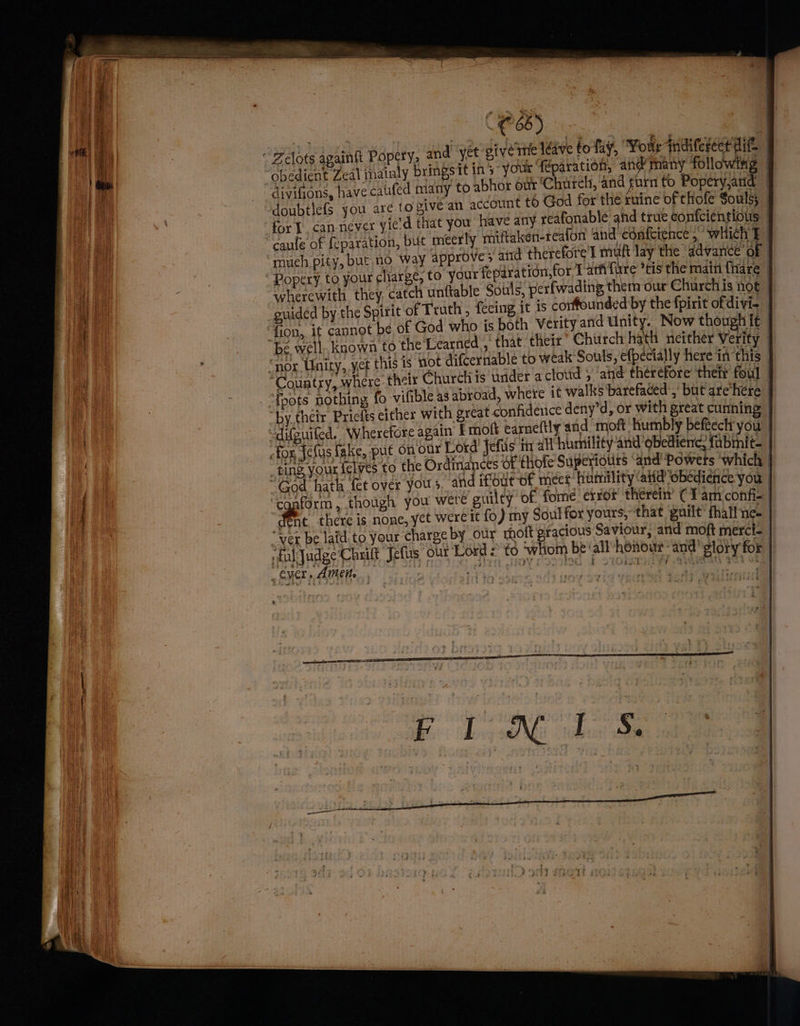 (66)
Zelots againſt Popery, and yet give me leave to ſay, Your indiſcreet diſ-
obedient Zeal mainly brings it in; your ſeparation, and many following
diviſions, have cauſed many to abhor our Church, and turn to Popery, and
doubtleſs you are to give an account to God for the ruine of thoſe Souls;
for I can never yie'd that you have any reaſonable and true conſcientious
cauſe of ſeparation, but meerly miſtaken-reaſon and conſcience, which I
much pity, but no way approve; and therefore I muſt lay the advance of
Popery to your charge, to your ſeparation, for I am ſure 'tis the main ſnare
wherewith they catch unſtable Souls, perſwading them our Church is not
guided by the Spirit of Truth, ſeeing it is conſounded by the ſpirit of divi-
ſion, it cannot be of God who is both Verity and Unity. Now though it
be well known to the Learned, that their Church hath neither Verity
nor Unity, yet this is not diſcernable to weak Souls, eſpecially here in this
Country, where their Church is under a cloud; and therefore their foul
ſpots nothing ſo viſible as abroad, where it walks barefaced, but are here
by their Prieſts either with great confidence deny'd, or with great cunning
diſguiſed. Wherefore again I moſt earneſtly and moſt humbly beſeech you
for Jeſus ſake, put on our Lord Jeſus in all humility and obedienc; ſubmit-
ting your ſelves to the Ordinances of thoſe Superiours and Powers which
God hath ſet over you; and if out of meer humility and obedience you
conform, though you were guilty of ſome error therein (I am confi-
dent there is none, yet were it ſo) my Soul for yours, that guilt ſhall ne-
ver be laid to your charge by our moſt gracious Saviour, and moſt merci-
ful Judge Chriſt Jeſus our Lord: to whom be all honour and glory for
ever, Amen.
FINIS.